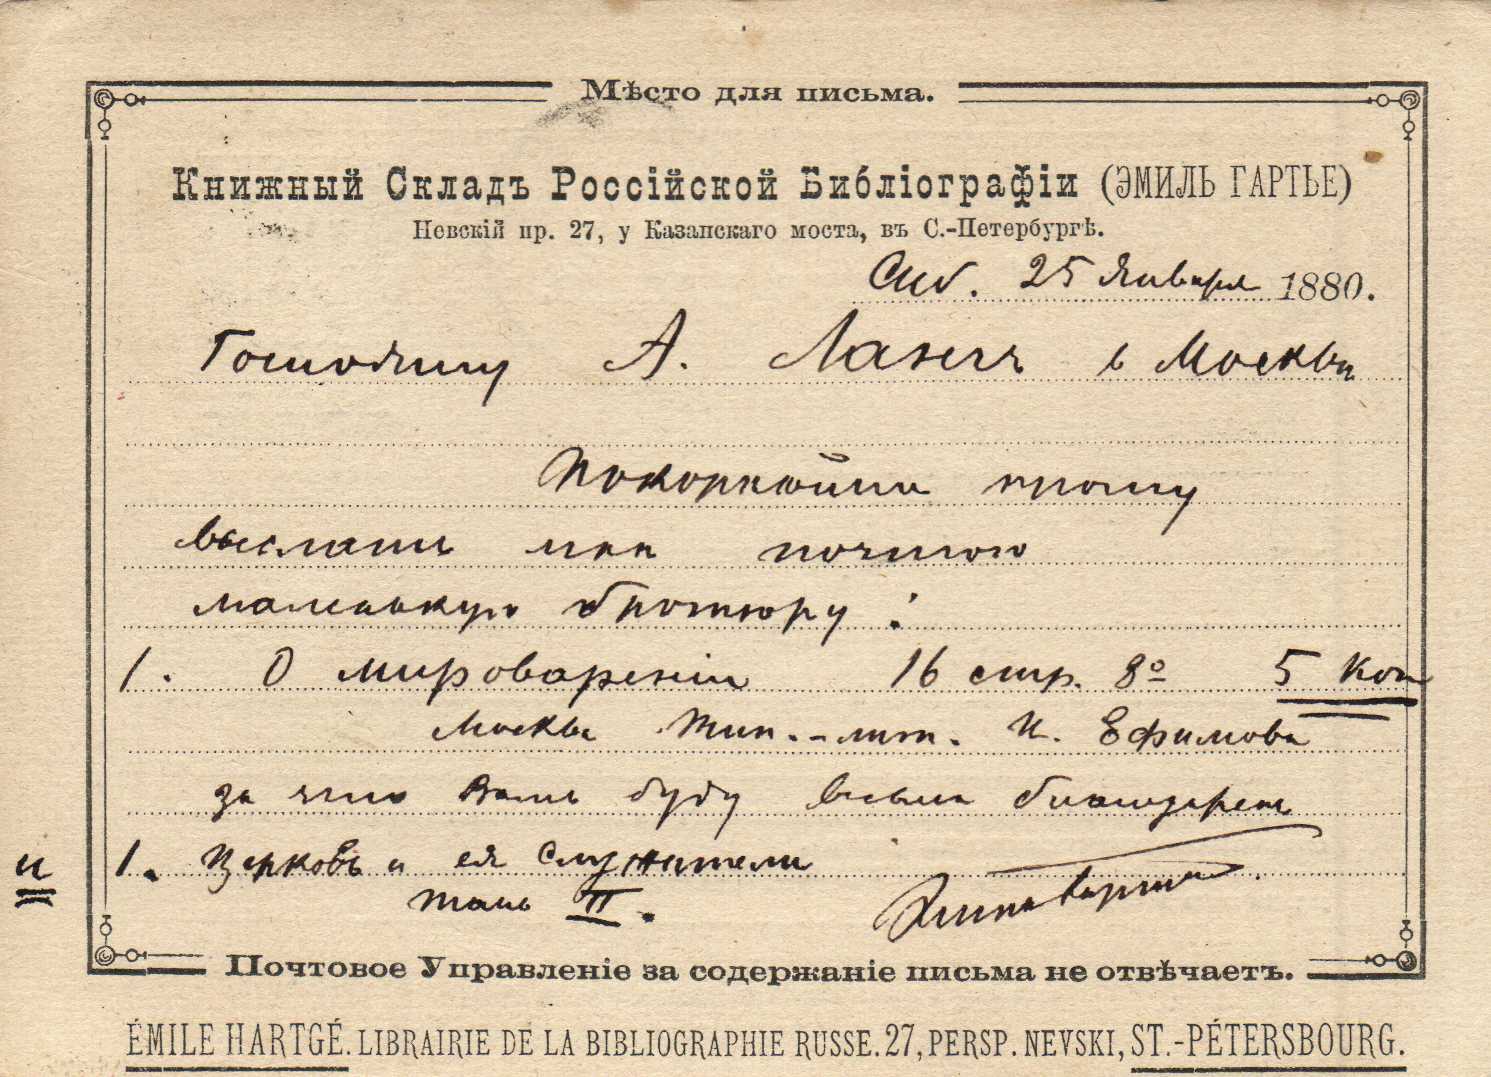 Мѣсто для письма.
Книжный Складъ Россійской Библіографіи (ЭМИЛЬ ГАРТЬЕ)
Невскій пр. 27, у Казанскаго моста, въ С.-Петербургѣ.
Спб. 25 Января 1880.
Господину А. Лангъ в Москвѣ
Покорнѣйше прошу
выслать мнѣ почтою
маленькую брошюру:
1. О мировареніи 16 стр. 8º 5 Коп
Москва Тип.-лит. И. Ефимова
за что Вамъ буду весьма благодаренъ
и 1. Церковь и ея служители
томъ II.
Эмиль Гартье
Почтовое Управленіе за содержаніе письма не отвѣчаетъ.
ÉMILE HARTGÉ. LIBRAIRIE DE LA BIBLIOGRAPHIE RUSSE. 27, PERSP. NEVSKI, ST.-PÉTERSBOURG.